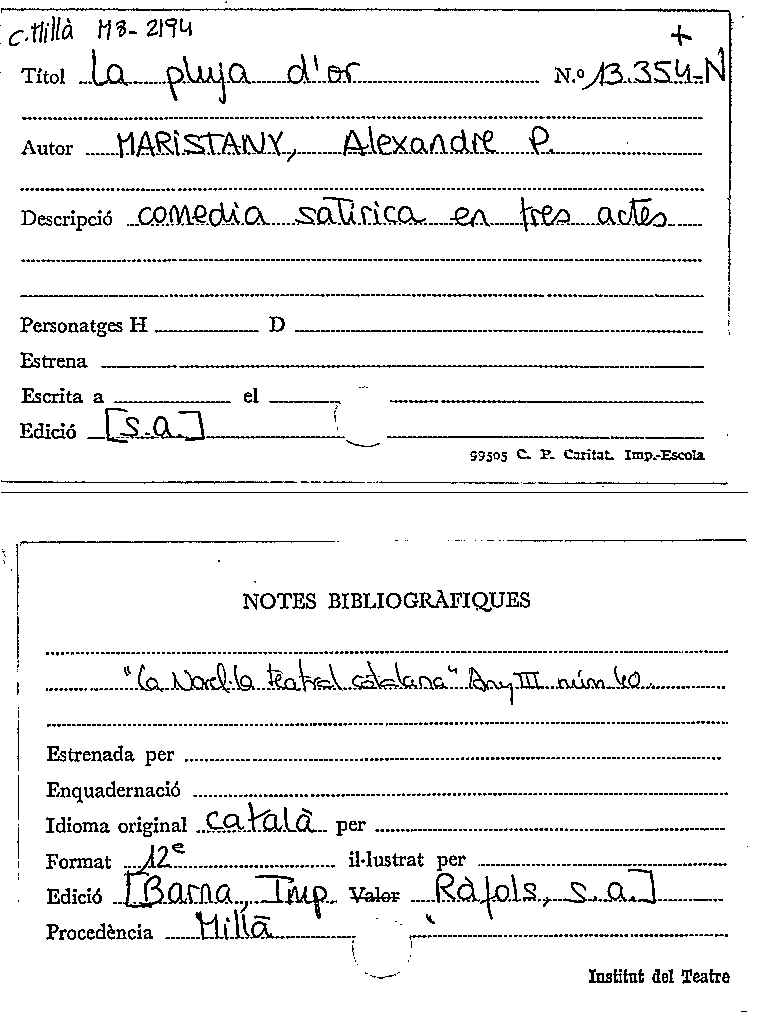 C. Millà M8-2194 +
Títol La pluja d'or N.º 13.354-N
Autor MARISTANY, Alexandre P.
Descripció comedia satirica en tres actes
Personatges H D
Estrena
Escrita a el
Edició [s.a.]
99505 C. P. Caritat. Imp.-Escola
NOTES BIBLIOGRÀFIQUES
"La Novel·la teatral catalana" Any III núm 40.
Estrenada per
Enquadernació
Idioma original català per
Format 12e il·lustrat per
Edició [Barna, Imp. Valor Ràfols, s.a.]
Procedència Millà
Institut del Teatre